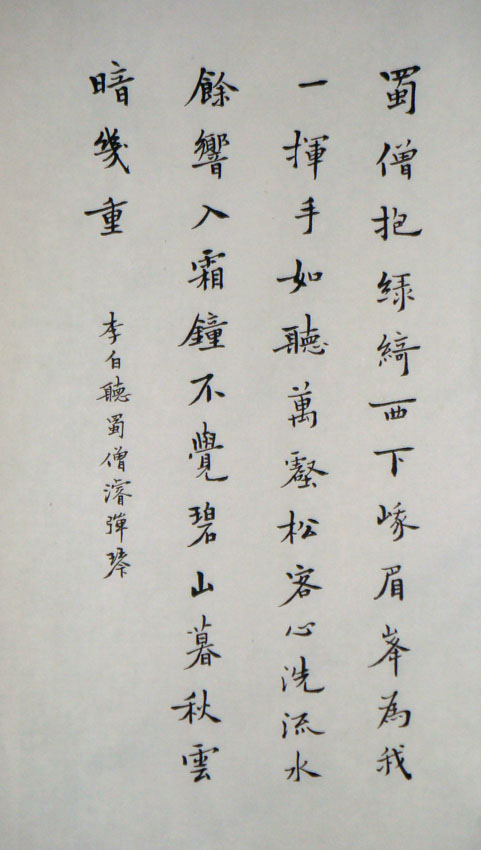 蜀僧抱綠綺西下峨眉峯為我
一揮手如聽萬壑松客心洗流水
餘響入霜鐘不覺碧山暮秋雲
暗幾重
李白聽蜀僧濬彈琴